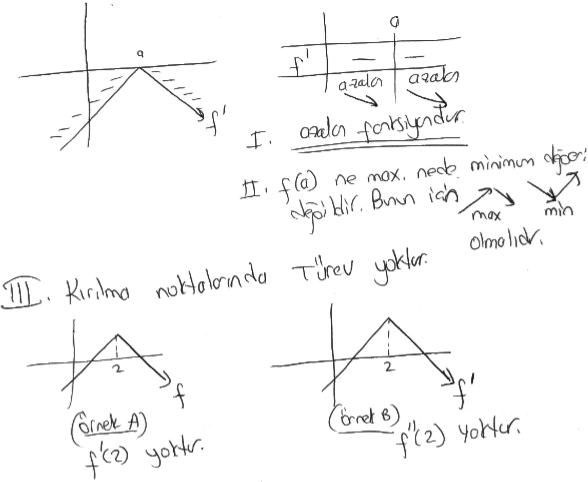 a
f'
a
f' − −
azalan azalan
I. azalan fonksiyondur.
II. f(a) ne max. nede minimum değeri
değildir. Bunun için
max min
olmalıdır.
III. Kırılma noktalarında Türev yoktur.
2
f
(Örnek A)
f'(2) yoktur.
2
f'
(Örnek B)
f''(2) yoktur.